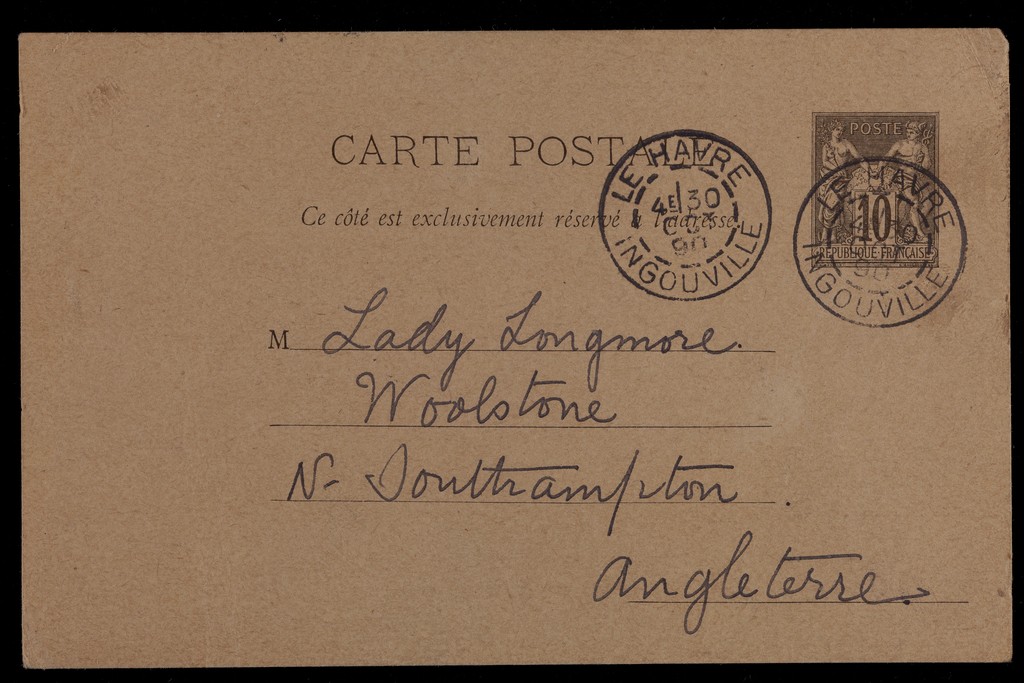 CARTE POSTALE
Ce côté est exclusivement réservé à l'adresse.
LE HAVRE
4E 30
90
INGOUVILLE
POSTE
10
REPUBLIQUE FRANÇAISE
LE HAVRE
90
INGOUVILLE
M Lady Longmore.
Woolstone
N- Southampton.
Angleterre.